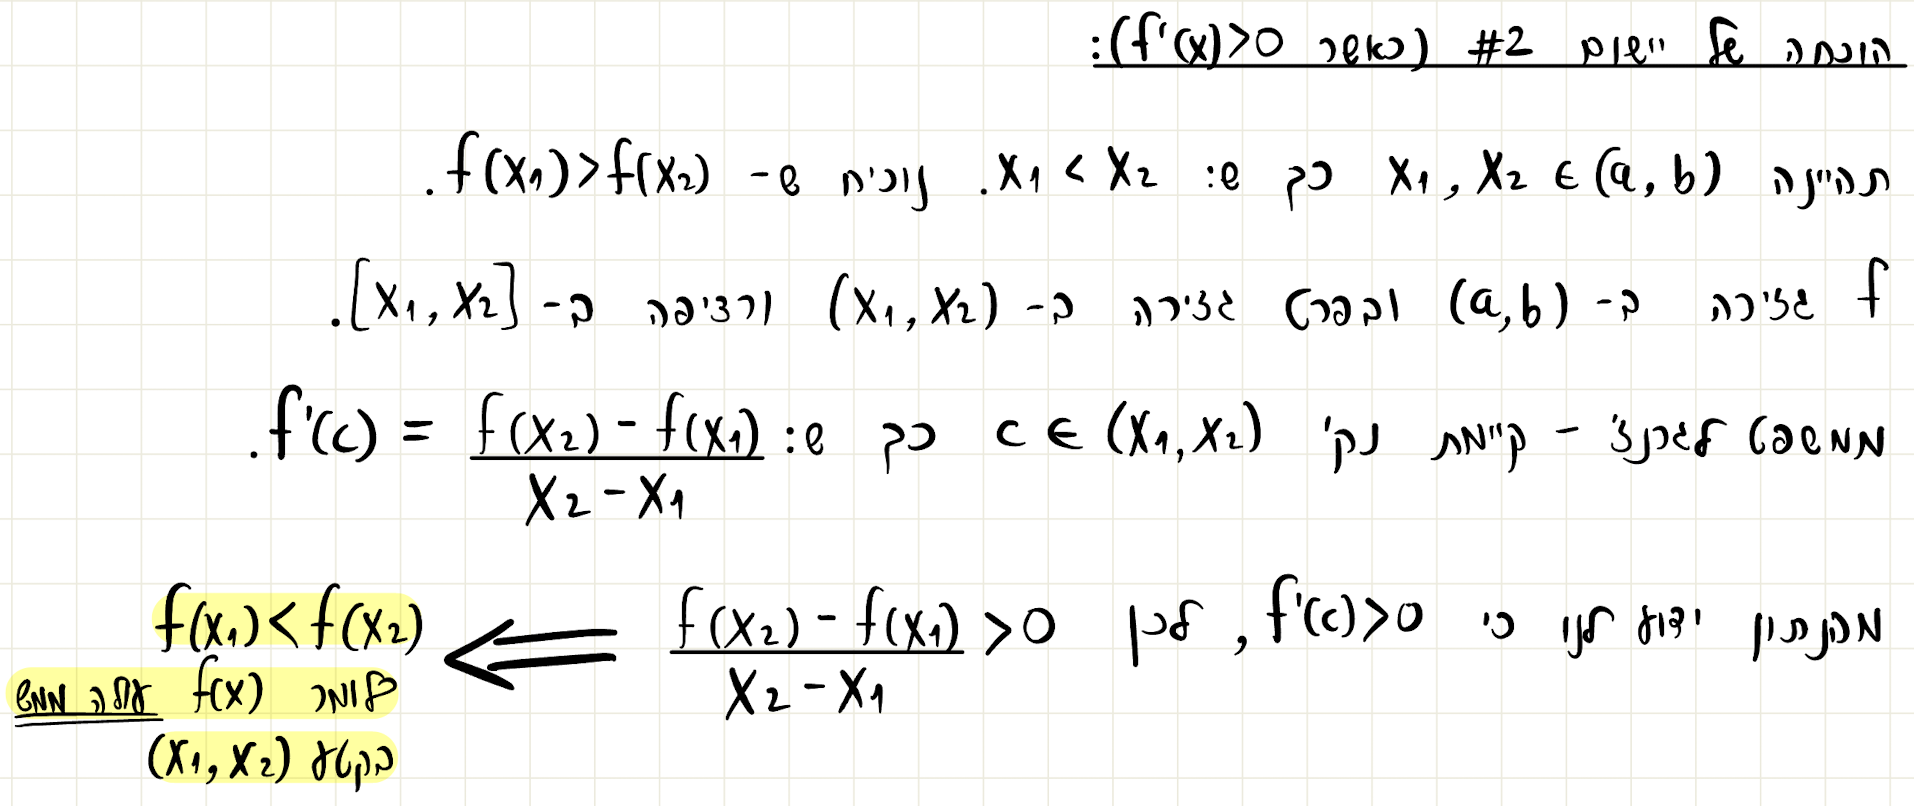 הוכחה של יישום #2 (כאשר f'(x)>0):
תהיינה x₁, x₂ ∈ (a, b) כך ש: x₁ < x₂. נוכיח ש- f(x₁)>f(x₂).
f גזירה ב- (a,b) ובפרט גזירה ב- (x₁, x₂) ורציפה ב- [x₁, x₂].
ממשפט לגרנצ' - קיימת נק' c ∈ (x₁, x₂) כך ש: f'(c) = (f(x₂) - f(x₁))/(x₂ - x₁).
מהנתון ידוע לנו כי f'(c)>0, לכן (f(x₂) - f(x₁))/(x₂ - x₁) > 0 ⟸ f(x₁)<f(x₂)
כלומר f(x) עולה ממש
בקטע (x₁, x₂)